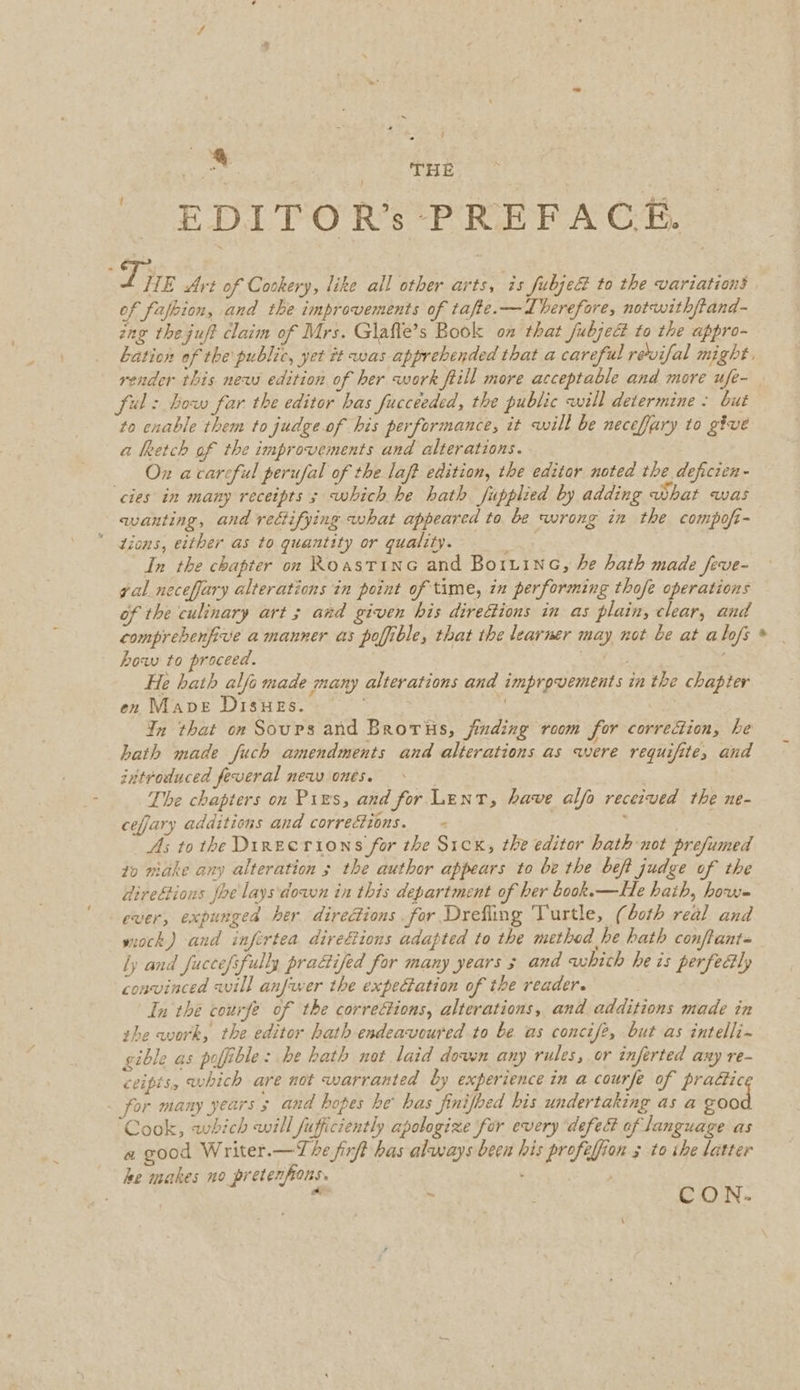 THE
EDITOR's PREFACE.
THE Art of Cookery, like all other arts, is ſubject to the variations
of faſhion, and the improvements of taſte.—Therefore, notwithſtand-
ing the juſt claim of Mrs. Glaſſe's Book on that ſubject to the appro-
bation of the public, yet it was apprehended that a careful reviſal might
render this new edition of her work ſtill more acceptable and more uſe-
ful: how far the editor has ſucceeded, the public will determine: but
to enable them to judge of his performance, it will be neceſſary to give
a ſketch of the improvements and alterations.
On a careful peruſal of the laſt edition, the editor noted the deficien-
cies in many receipts; which he hath ſupplied by adding what was
wanting, and rectifying what appeared to be wrong in the compoſi-
tions, either as to quantity or quality.
In the chapter on ROASTING and BOILING, he hath made ſeve-
ral neceſſary alterations in point of time, in performing thoſe operations
of the culinary art; and given his directions in as plain, clear, and
comprehenſive a manner as poſſible, that the learner may not be at a loſs
how to proceed.
He hath alſo made many alterations and improvements in the chapter
on MADE DISHES.
In that on SOUPS and BROTHS, finding room for correction, he
hath made ſuch amendments and alterations as were requiſite, and
introduced ſeveral new ones.
The chapters on PIES, and for LENT, have alſo received the ne-
ceſſary additions and corrections.
As to the DIRECTIONS for the SICK, the editor hath not preſumed
to make any alteration; the author appears to be the beſt judge of the
directions ſhe lays down in this department of her book.—He hath, how-
ever, expunged her directions for Dreſſing Turtle, (both real and
mock) and inſerted directions adapted to the method he hath conſtant-
ly and ſucceſsfully practiſed for many years; and which he is perfectly
convinced will anſwer the expectation of the reader.
In the courſe of the corrections, alterations, and additions made in
the work, the editor hath endeavoured to be as conciſe, but as intelli-
gible as poſſible: he hath not laid down any rules, or inſerted any re-
ceipts, which are not warranted by experience in a courſe of practice
for many years; and hopes he has finiſhed his undertaking as a good
Cook, which will ſufficiently apologize for every defect of language as
a good Writer.—The firſt has always been his profeſſion; to the latter
he makes no pretenſions.
CON-